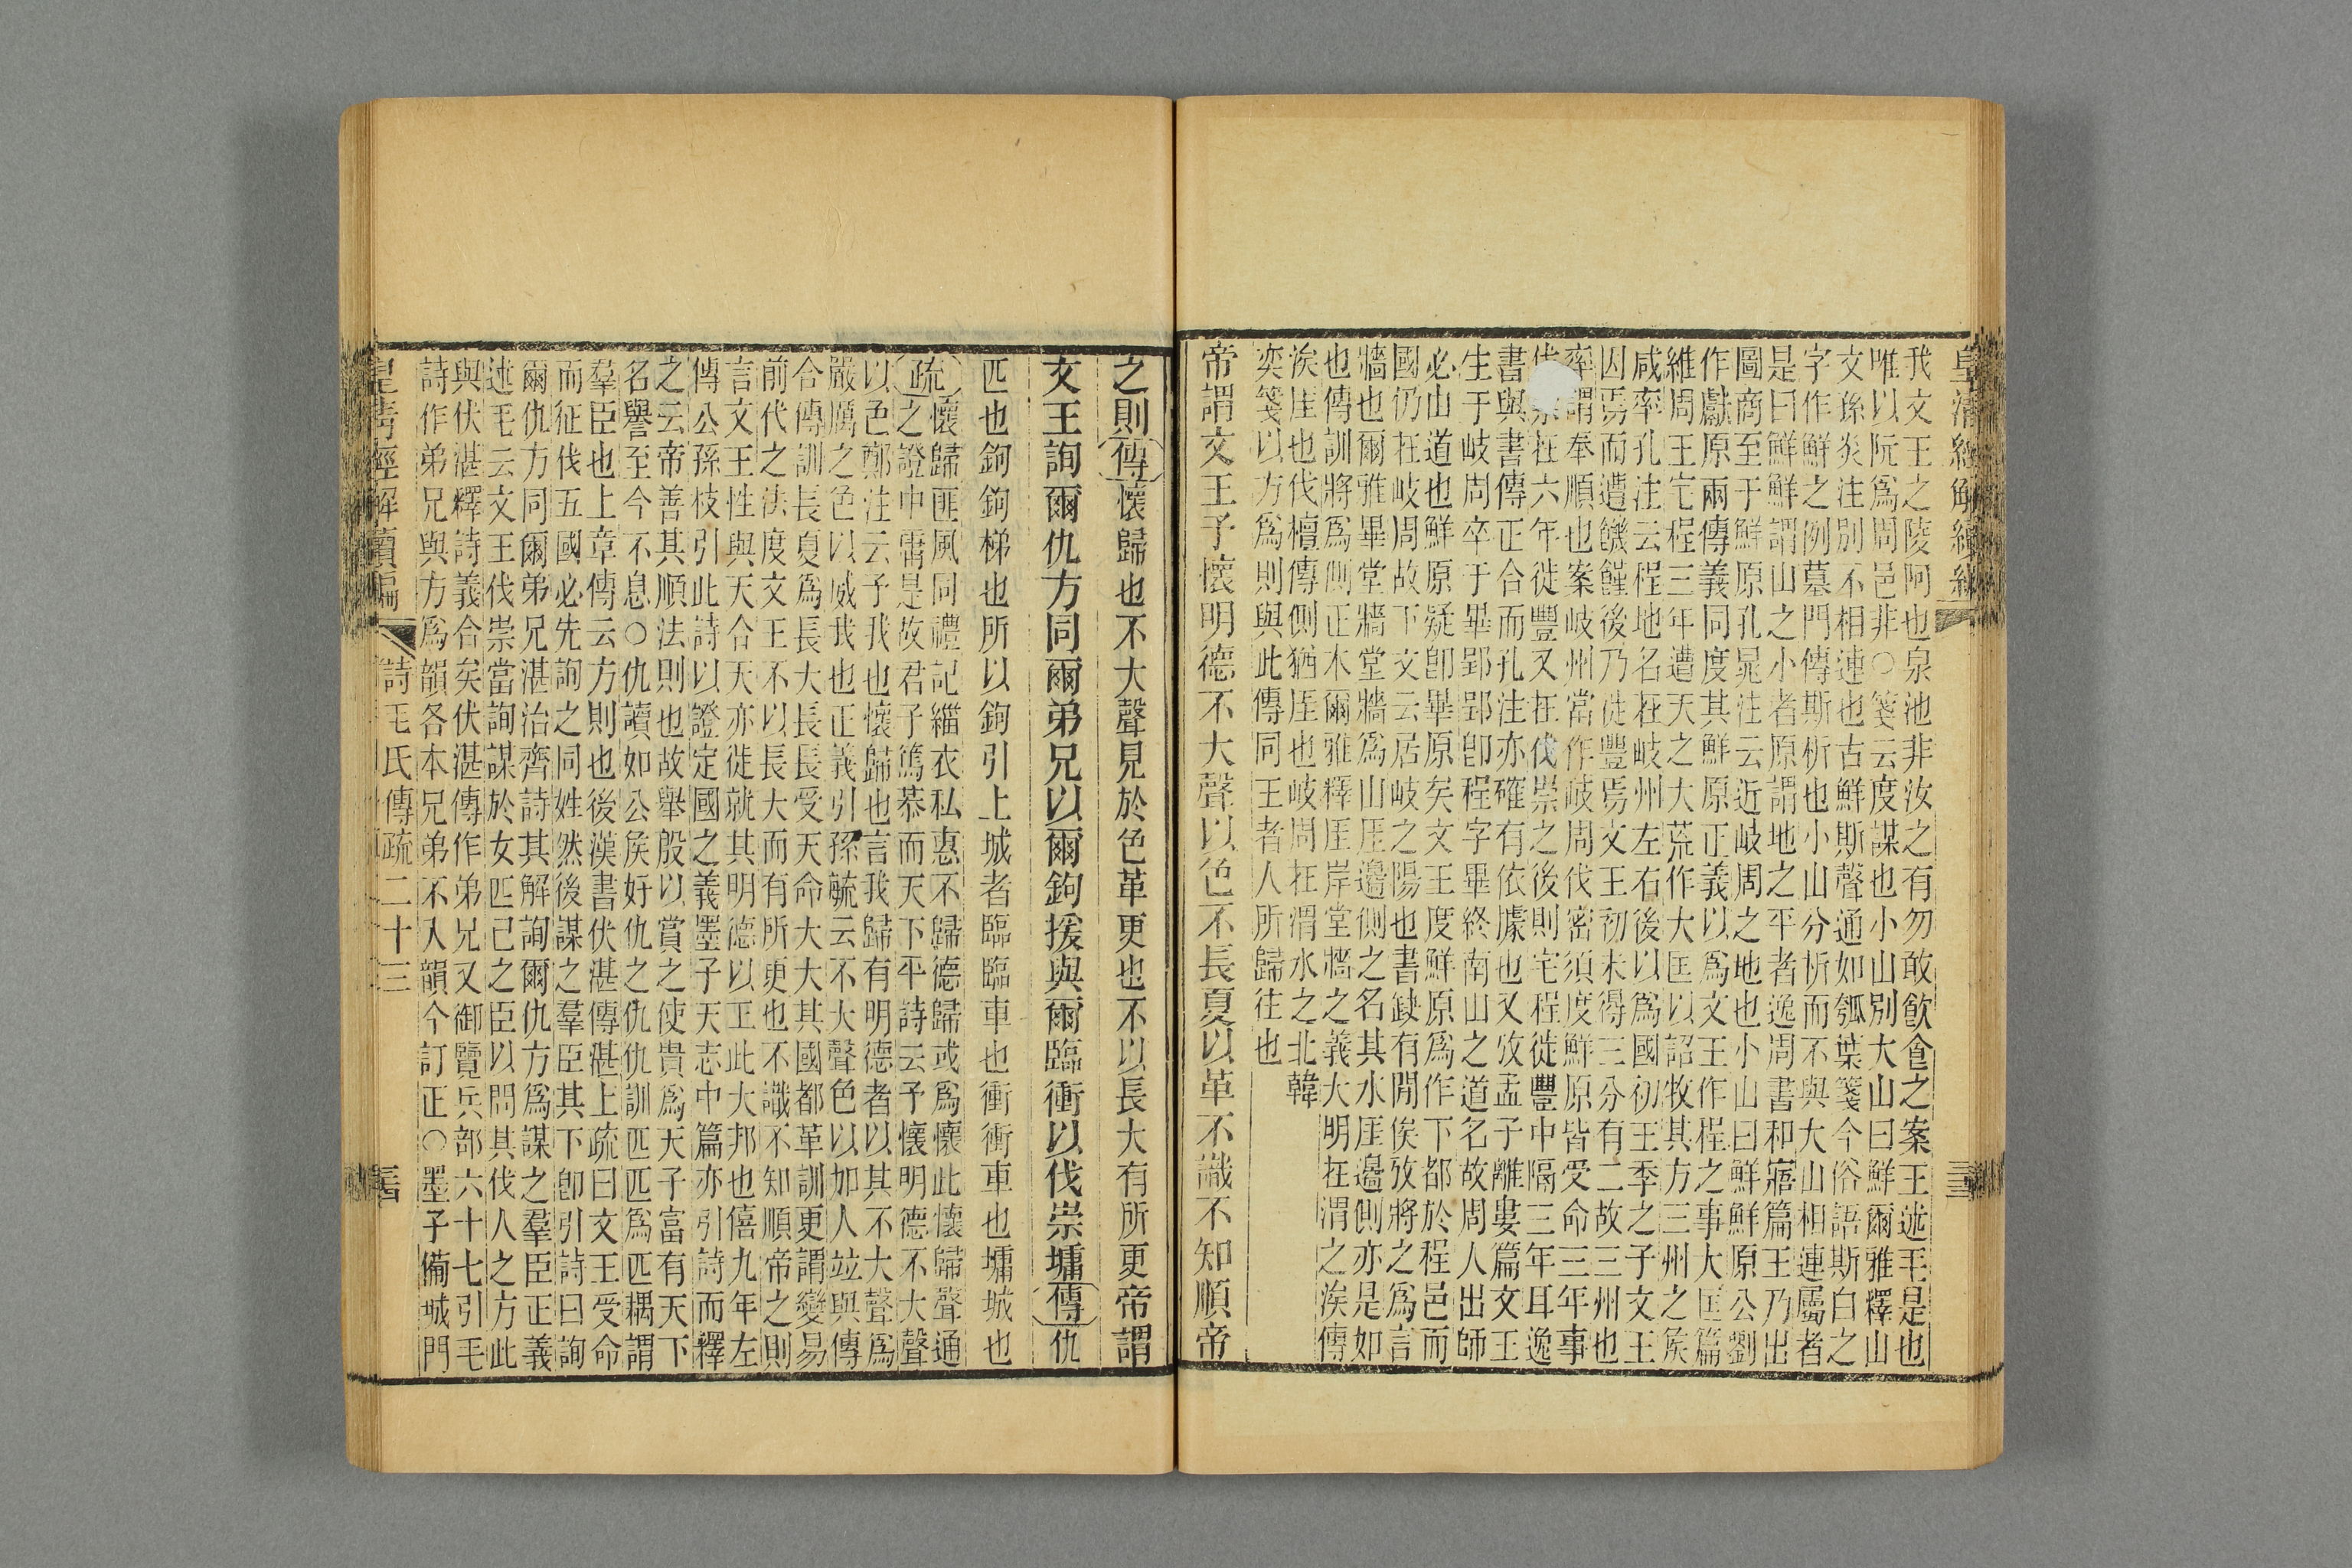 皇清經解續編
三三
我文王之陵阿也泉池非汝之有勿敢飲食之案王述毛是也
唯以阮爲周邑非○箋云度謀也小山別大山曰鮮爾雅釋山
文孫炎注別不相連也古鮮斯聲通如瓠葉箋今俗語斯白之
字作鮮之例墓門傳斯析也小山分析而不與大山相連屬者
是曰鮮鮮謂山之小者原謂地之平者逸周書和寤篇王乃出
圖商至于鮮原孔晁注云近岐周之地也小山曰鮮鮮原公劉
作獻原兩傳義同度其鮮原正義以爲文王作程之事大匡篇
維周王宅程三年遭天之大荒作大匡以詔牧其方三州之矦
咸率孔注云程地名在岐州左右後以爲國初王季之子文王
因焉而遭饑饉後乃徙豐焉文王初未得三分有二故三州也
率謂奉順也案岐州當作岐周伐密須度鮮原皆受命三年事
在六年徙豐又在伐崇之後則宅程徙豐中隔三年耳逸
書與書傳正合而孔注亦確有依據也又攷孟子離婁篇文王
生于岐周卒于畢郢郢卽程字畢終南山之道名故周人出師
必山道也鮮原疑卽畢原矣文王度鮮原爲作下都於程邑而
國仍在岐周故下文云居岐之陽也書缺有閒俟攷將之爲言
牆也爾雅畢堂牆堂牆爲山厓邊側之名其水厓邊側亦是如
也傳訓將爲側正本爾雅釋厓岸堂牆之義大明在渭之涘傳
涘厓也伐檀傳側猶厓也岐周在渭水之北韓
奕箋以方爲則與此傳同王者人所歸往也
帝謂文王予懷明德不大聲以色不長夏以革不識不知順帝
之則傳懷歸也不大聲見於色革更也不以長大有所更帝謂
文王詢爾仇方同爾弟兄以爾鉤援與爾臨衝以伐崇墉傳仇
匹也鉤鉤梯也所以鉤引上城者臨臨車也衝衝車也墉城也
疏懷歸匪風同禮記緇衣私惠不歸德歸或爲懷此懷歸聲通
之證中庸是故君子篤恭而天下平詩云予懷明德不大聲
以色鄭注云予我也懷歸也言我歸有明德者以其不大聲爲
嚴厲之色以威我也正義引孫毓云不大聲色以加人竝與傳
合傳訓長夏爲長大長長受天命大大其國都革訓更謂變易
前代之法度文王不以長大而有所更也不識不知順帝之則
言文王性與天合天亦徙就其明德以正此大邦也僖九年左
傳公孫枝引此詩以證定國之義墨子天志中篇亦引詩而釋
之云帝善其順法則也故舉殷以賞之使貴爲天子富有天下
名譽至今不息○仇讀如公矦好仇之仇仇訓匹匹爲匹耦謂
羣臣也上章傳云方則也後漢書伏湛傳湛上疏曰文王受命
而征伐五國必先詢之同姓然後謀之羣臣其下卽引詩曰詢
爾仇方同爾弟兄湛治齊詩其解詢爾仇方爲謀之羣臣正義
述毛云文王伐崇當詢謀於女匹己之臣以問其伐人之方此
與伏湛釋詩義合矣伏湛傳作弟兄又御覽兵部六十七引毛
詩作弟兄與方爲韻各本兄弟不入韻今訂正○墨子備城門
皇清經解續編
詩毛氏傳疏二十三